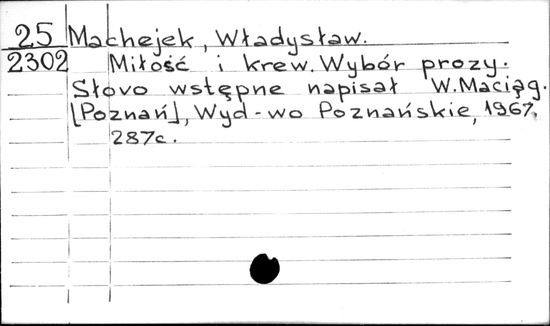 25 Machejek, Władysław.
2302 Miłość i krew. Wybór prozy.
Słovo wstępne napisał W. Maciąg.
[Poznań], Wyd-wo Poznańskie, 1967.
287c.